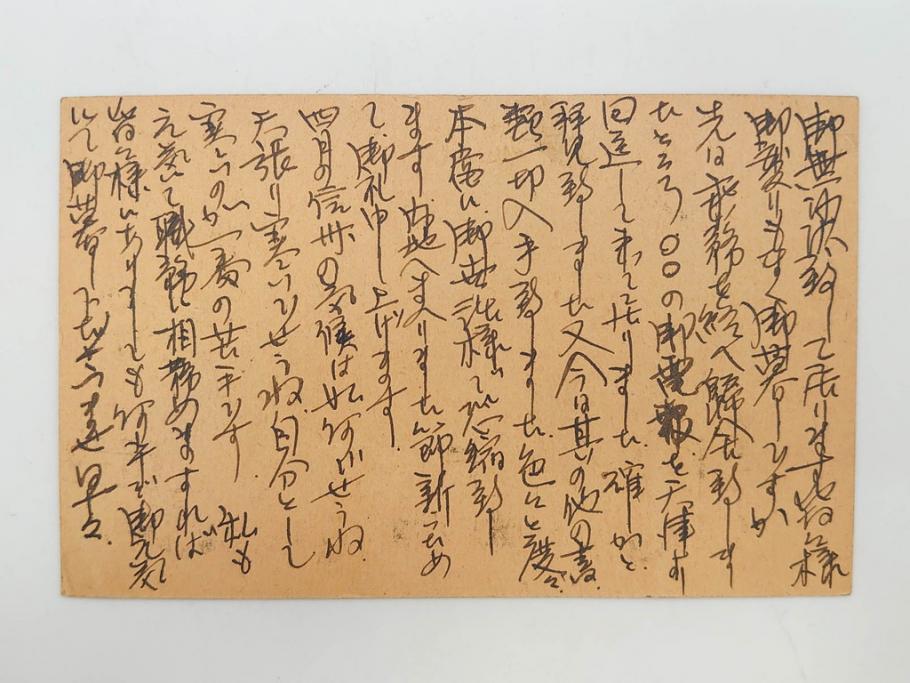 御無沙汰致して居ります皆々様
御変りもなく御暮しですか
先日 務を終へ帰 致しま
したところ〇〇の御電報を天津より
回送して来て居りました 確かと
拝見致しました 又今日其の他の書
類一切入手致しました 色々と度々
本当に御世話様で恐縮致し
ます 内地へまゐりました節 新ためめ
て御礼申し上げます
四月の信州の気候は如何でせうね
矢張り寒いでせうね 自分とし
寒いのが一番の苦手です 私も
元気で職務に相務めますれば
皆々様にありましても何卒 御元気
にて御暮し下さいませ 早々